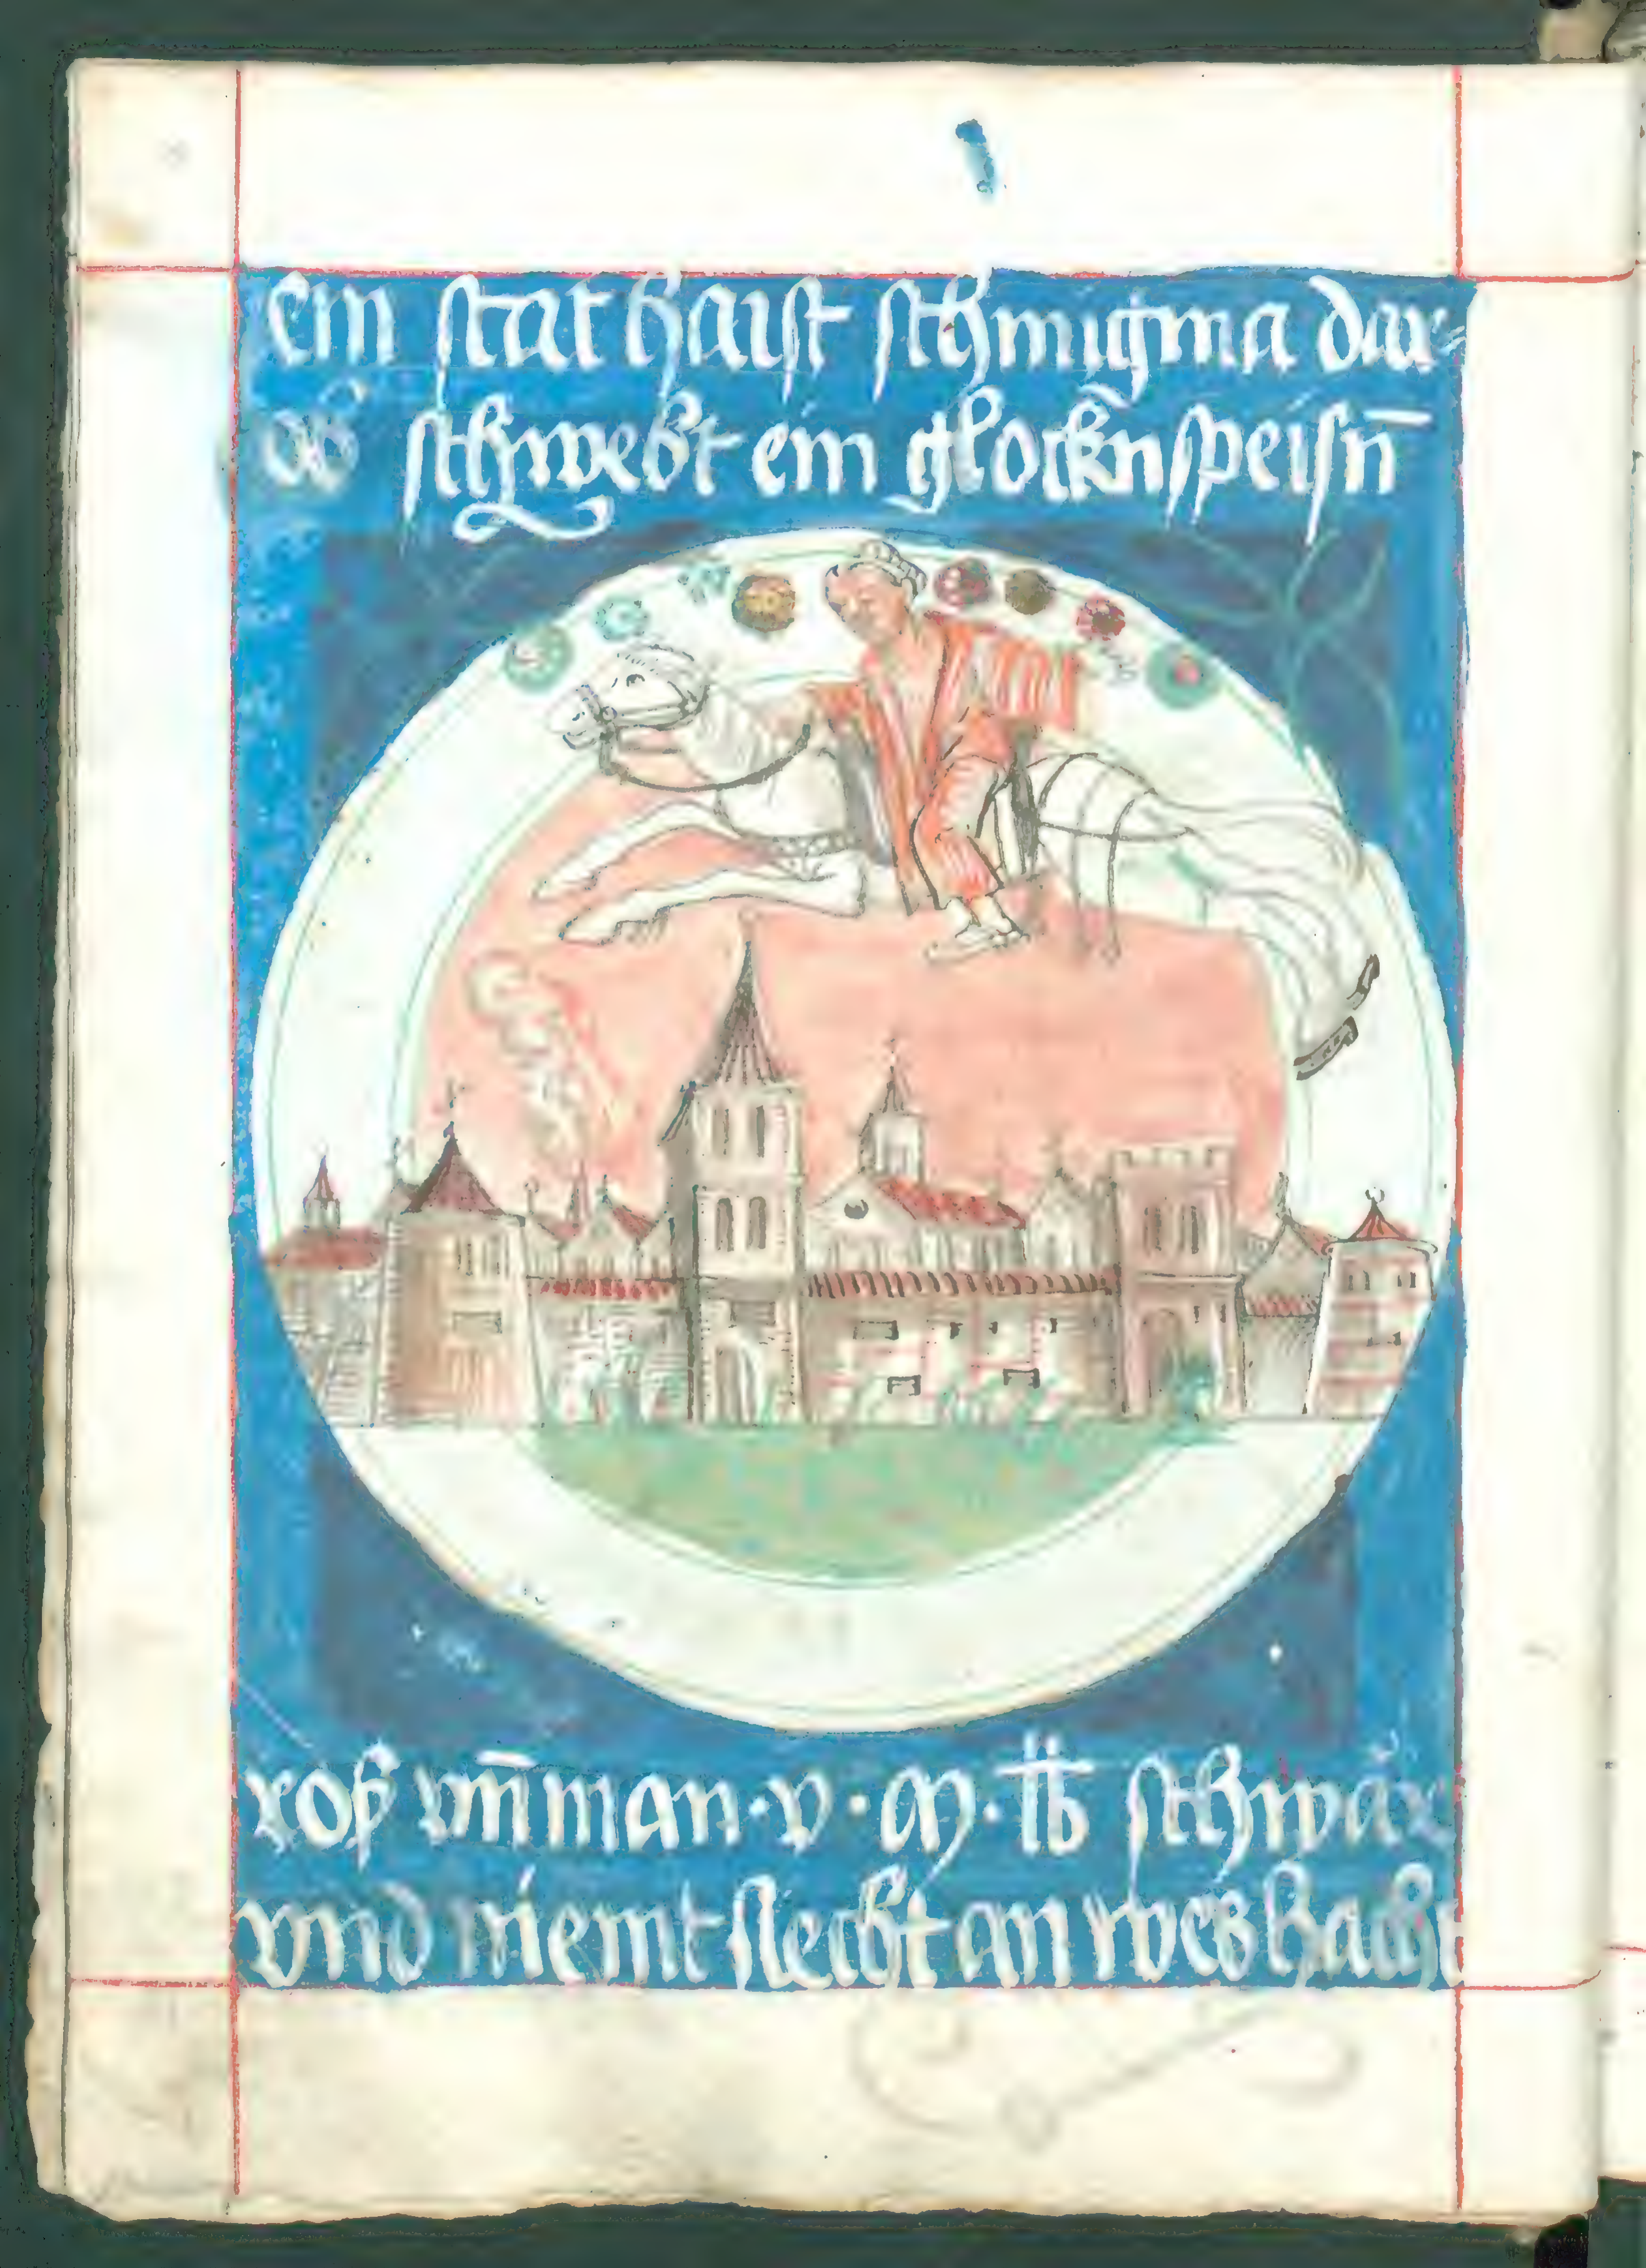 ein stat haist schmigma dar⸗
ob schwebt ein glockn̄speisn̄
roß vn̄ man · v · M · ℔ schwär
vnd niemt slecht an wes hacht